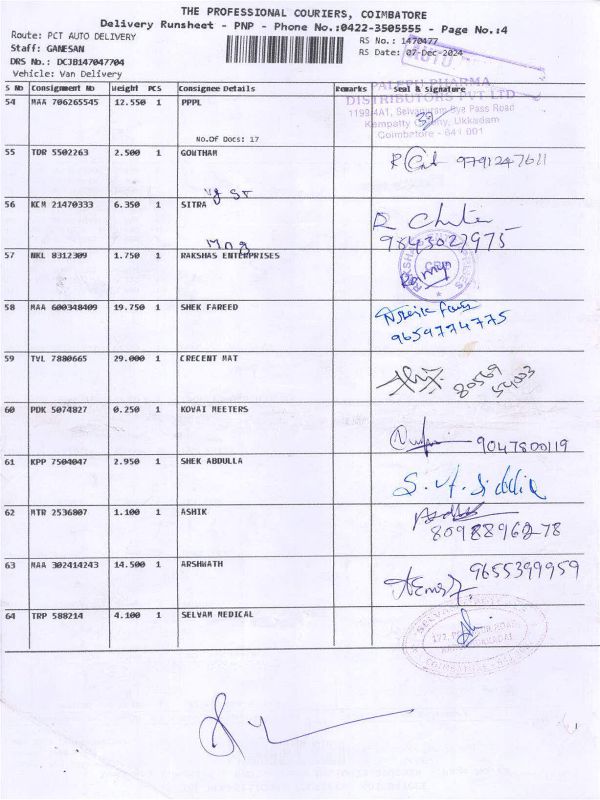 THE PROFESSIONAL COURIERS, COIMBATORE
Delivery Runsheet - PNP - Phone No.:0422-3505555 - Page No.:4
Route: PCT AUTO DELIVERY RS No.: 1470477
Staff: GANESAN RS Date: 07-Dec-2024
DRS No.: DCJB147047704
Vehicle: Van Delivery
S No Consignment No Weight PCS Consignee Details Remarks Seal & Signature
54 MAA 706265545 12.550 1 PPPL
PHARMA
DISTRIBUTORS PVT LTD
1199,4A1, Selvapuram Bye Pass Road
Ukkadam
Coimbatore - 641 001
No.Of Docs: 17
55 TDR 5502263 2.500 1 GOWTHAM
9791247611
56 KCM 21470333 6.350 1 SITRA
9843027975
57 NKL 8312309 1.750 1 RAKSHAS ENTERPRISES
58 MAA 600348409 19.750 1 SHEK FAREED
9659774775
59 TVL 7880665 29.000 1 CRECENT MAT
80569
54003
60 PDK 5074827 0.250 1 KOVAI MEETERS
9047800119
61 KPP 7504047 2.950 1 SHEK ABDULLA
62 MTR 2536807 1.100 1 ASHIK
8098896278
63 MAA 302414243 14.500 1 ARSHWATH
9655399959
64 TRP 588214 4.100 1 SELVAM MEDICAL